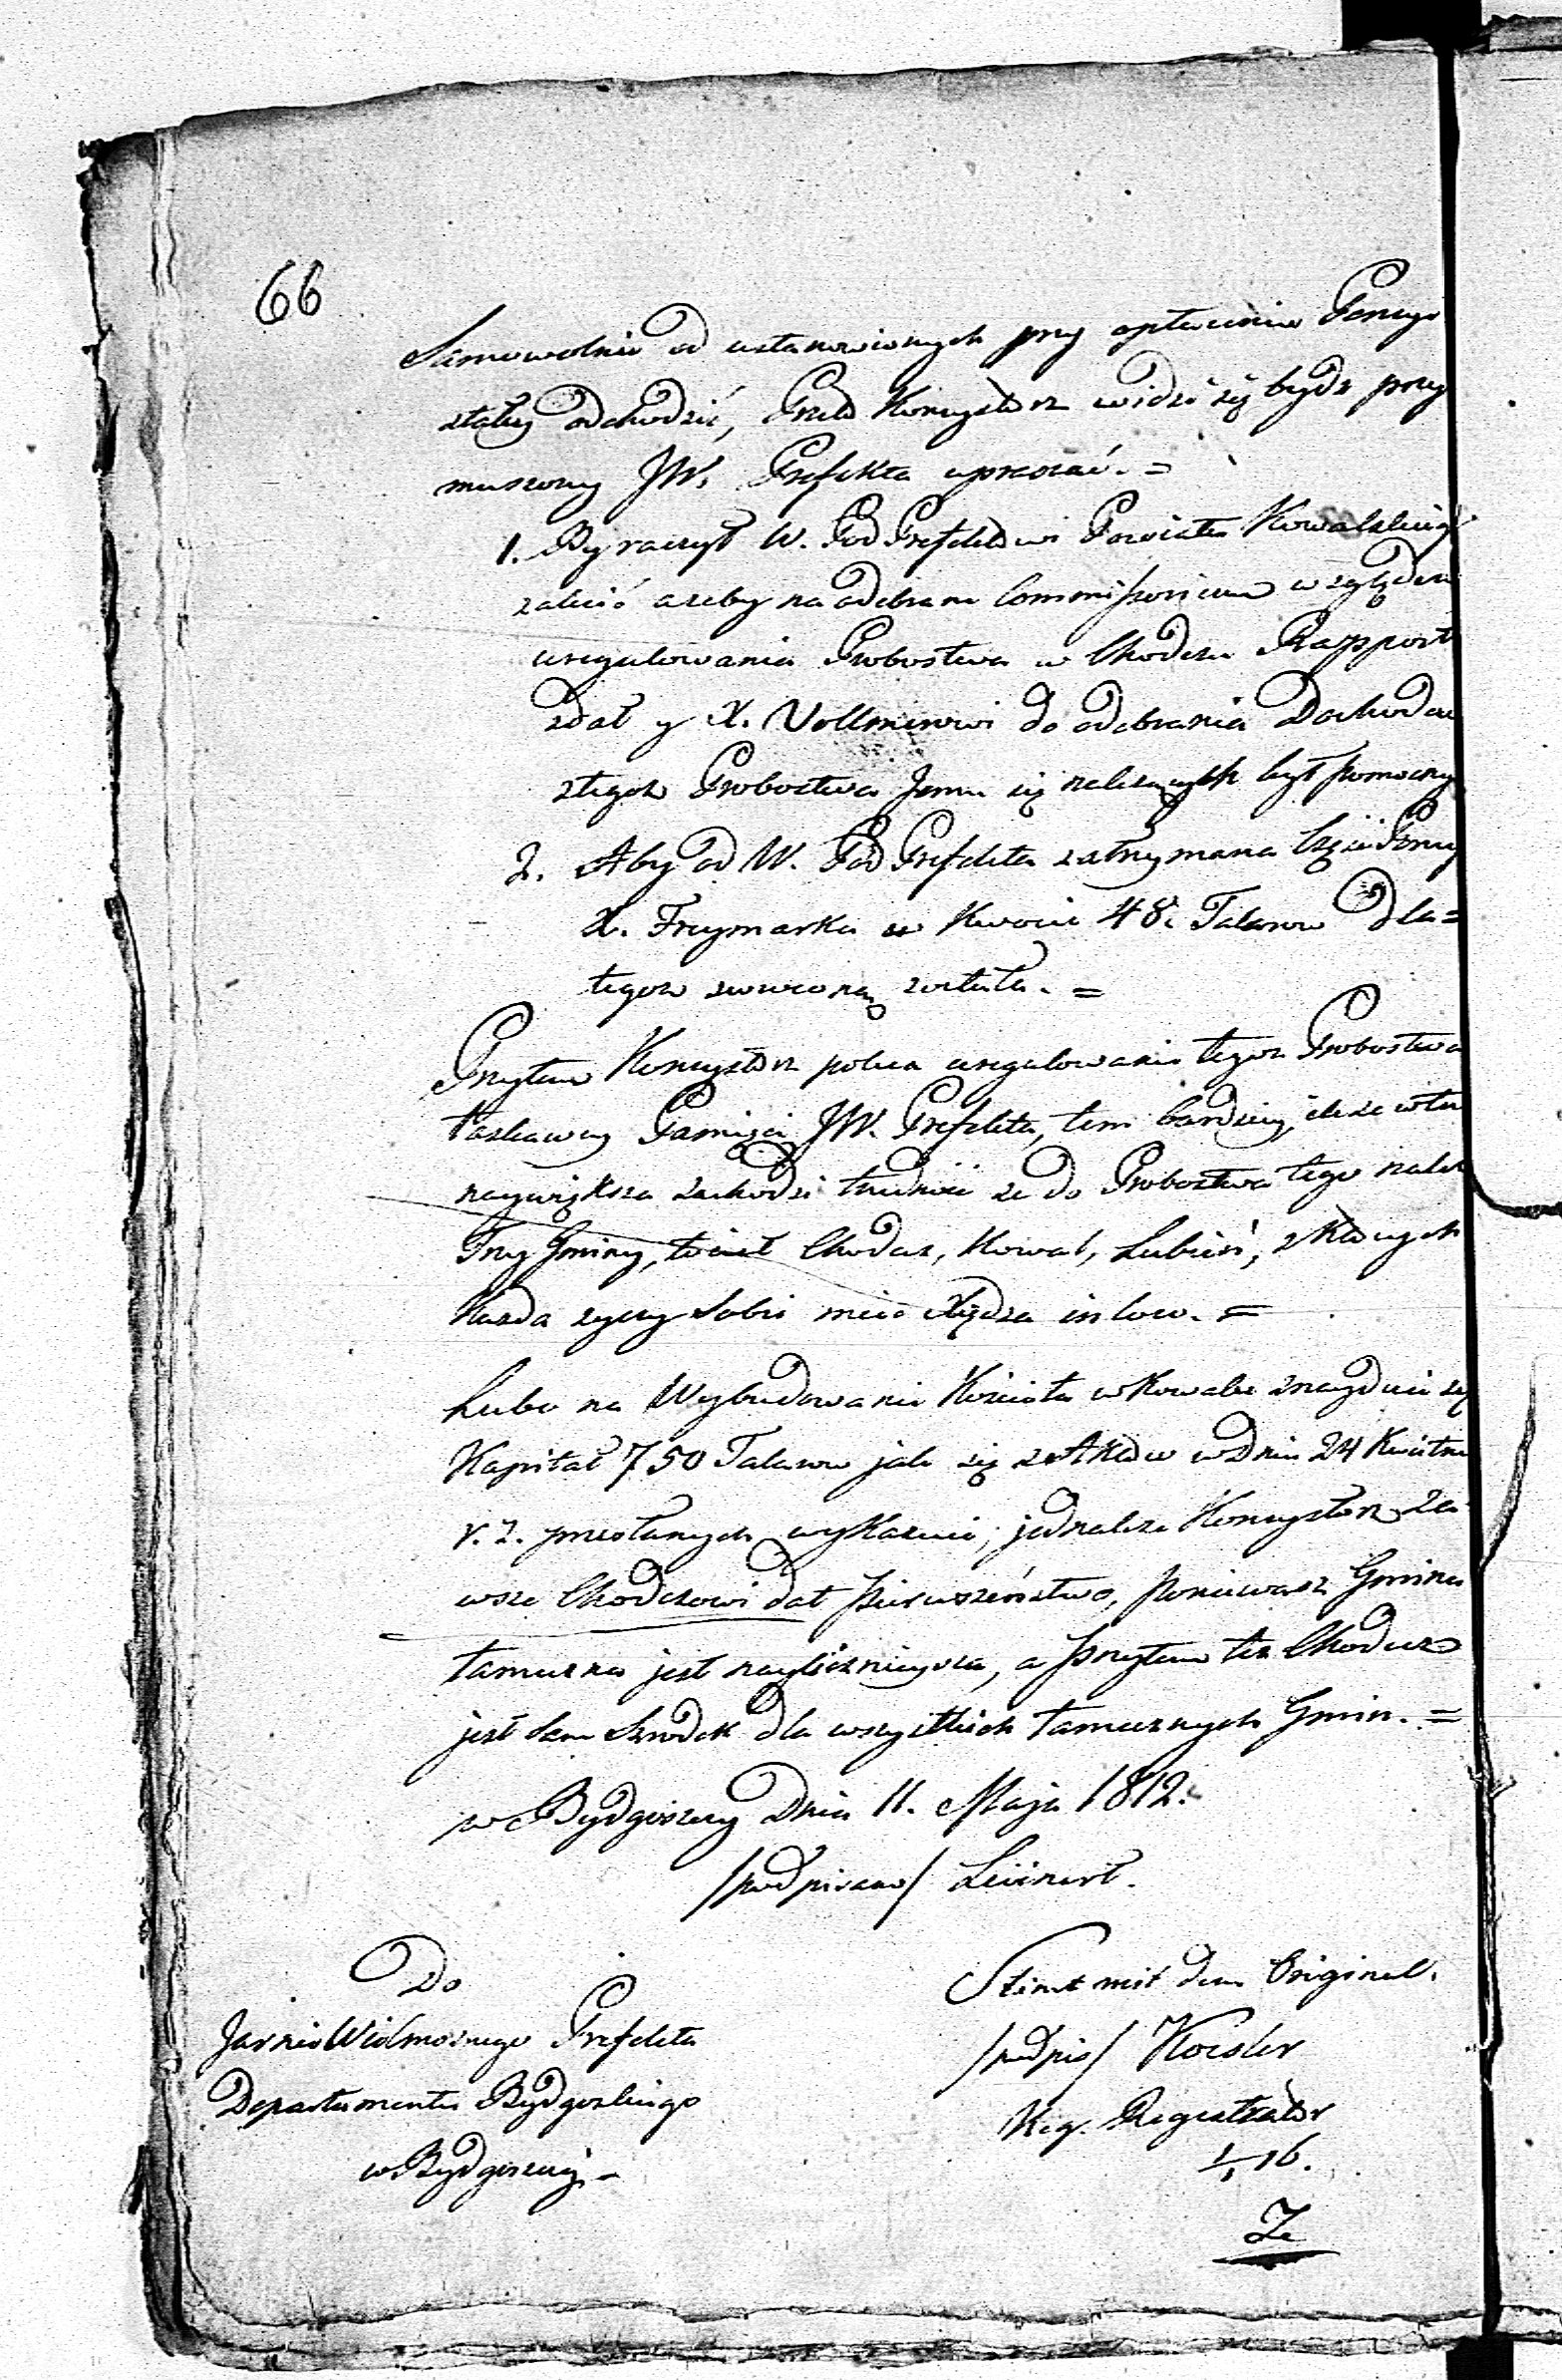 66
Samowolnie od ustanowionych przy opłaceniu Pensyi
stałey odchodzić, Przeto Konsystorz widzi się bydz przy
muszony JW. Prefekta upraszać. =
1. By raczył W. PodPrefektowi Powiatu Kowalskiego
zalecić azeby na odebrane Commissorium względem
uregulowania Probostwa w Chodczu Rapport
zdał y X. Vollmerowi do odebrania Dochodow
z tegoz Probostwa Jemu się nalezących był pomocny
2. Aby od W. PodPrefekta zatrzymana Część Pensyi
X. Frymarka w kwocie 48. Talarow dla=
tegoz zwrocona została. =
Przytem Konsystorz poleca uregulowanie tegoz Probostwa
łaskawey Pamięci JW. Prefekta, tem bardziey, ile ze w tem
naywiększa zachodzi trudność ze do Probostwa tego należą
Trzy Gminy, to iest Chodecz, Kowal, Lubień, z których
Kazda zyczy Sobie mieć Xiędza in loco. =
Lubo na Wybudowanie Kościoła w Kowalu znayduie się
Kapitał 750 Talarow jak się z Aktow w Dniu 24 Kwietnia
r. z. przesłanych wykazuie, jednakze Konsystorz za
wsze Chodczowi dał pierwszeństwo, poniewasz Gmina
tameczna jest naylicznieysza, a przytem tez Chodecz
jest sam Szrodek dla wszystkich tamecznych Gmin. =
w Bydgoszczy Dnia 11. Maja 1812.
/podpisano/ Leinert.
Do
Jasnie Wielmoznego Prefekta
Departamentu Bydgoskiego
w Bydgoszczy. -
Stimt mit dem Original.
/podpis/ Koesler
Reg. Registrator
16.
Ze